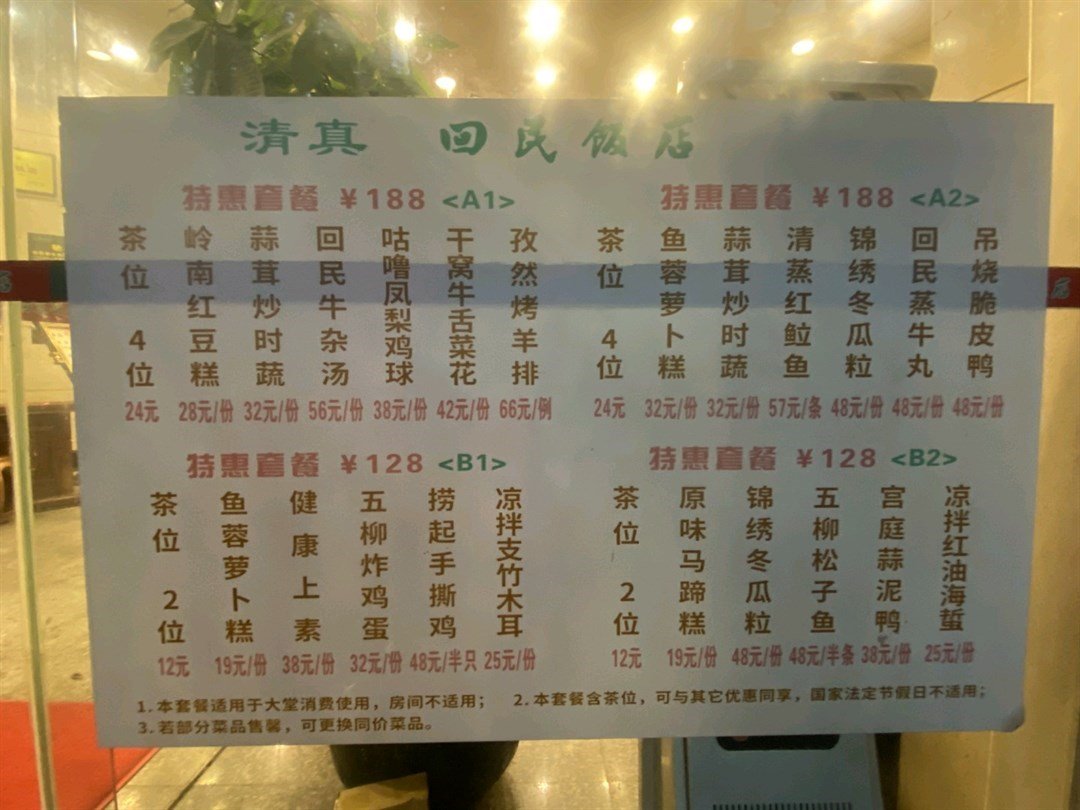 清真 回民饭店
特惠套餐 ¥188 <A1>
茶位 4位
岭南红豆糕
蒜茸炒时蔬
回民牛杂汤
咕噜凤梨鸡球
干窝牛舌菜花
孜然烤羊排
24元 28元/份 32元/份 56元/份 38元/份 42元/份 66元/例
特惠套餐 ¥188 <A2>
茶位 4位
鱼蓉萝卜糕
蒜茸炒时蔬
清蒸红鲉鱼
锦绣冬瓜粒
回民蒸牛丸
吊烧脆皮鸭
24元 32元/份 32元/份 57元/条 48元/份 48元/份 48元/份
特惠套餐 ¥128 <B1>
茶位 2位
鱼蓉萝卜糕
健康上素
五柳炸鸡蛋
捞起手撕鸡
凉拌支竹木耳
12元 19元/份 38元/份 32元/份 48元/半只 25元/份
特惠套餐 ¥128 <B2>
茶位 2位
原味马蹄糕
锦绣冬瓜粒
五柳松子鱼
宫庭蒜泥鸭
凉拌红油海蜇
12元 19元/份 48元/份 48元/半条 38元/份 25元/份
1.本套餐适用于大堂消费使用，房间不适用； 2.本套餐含茶位，可与其它优惠同享，国家法定节假日不适用；
3.若部分菜品售馨，可更换同价菜品。